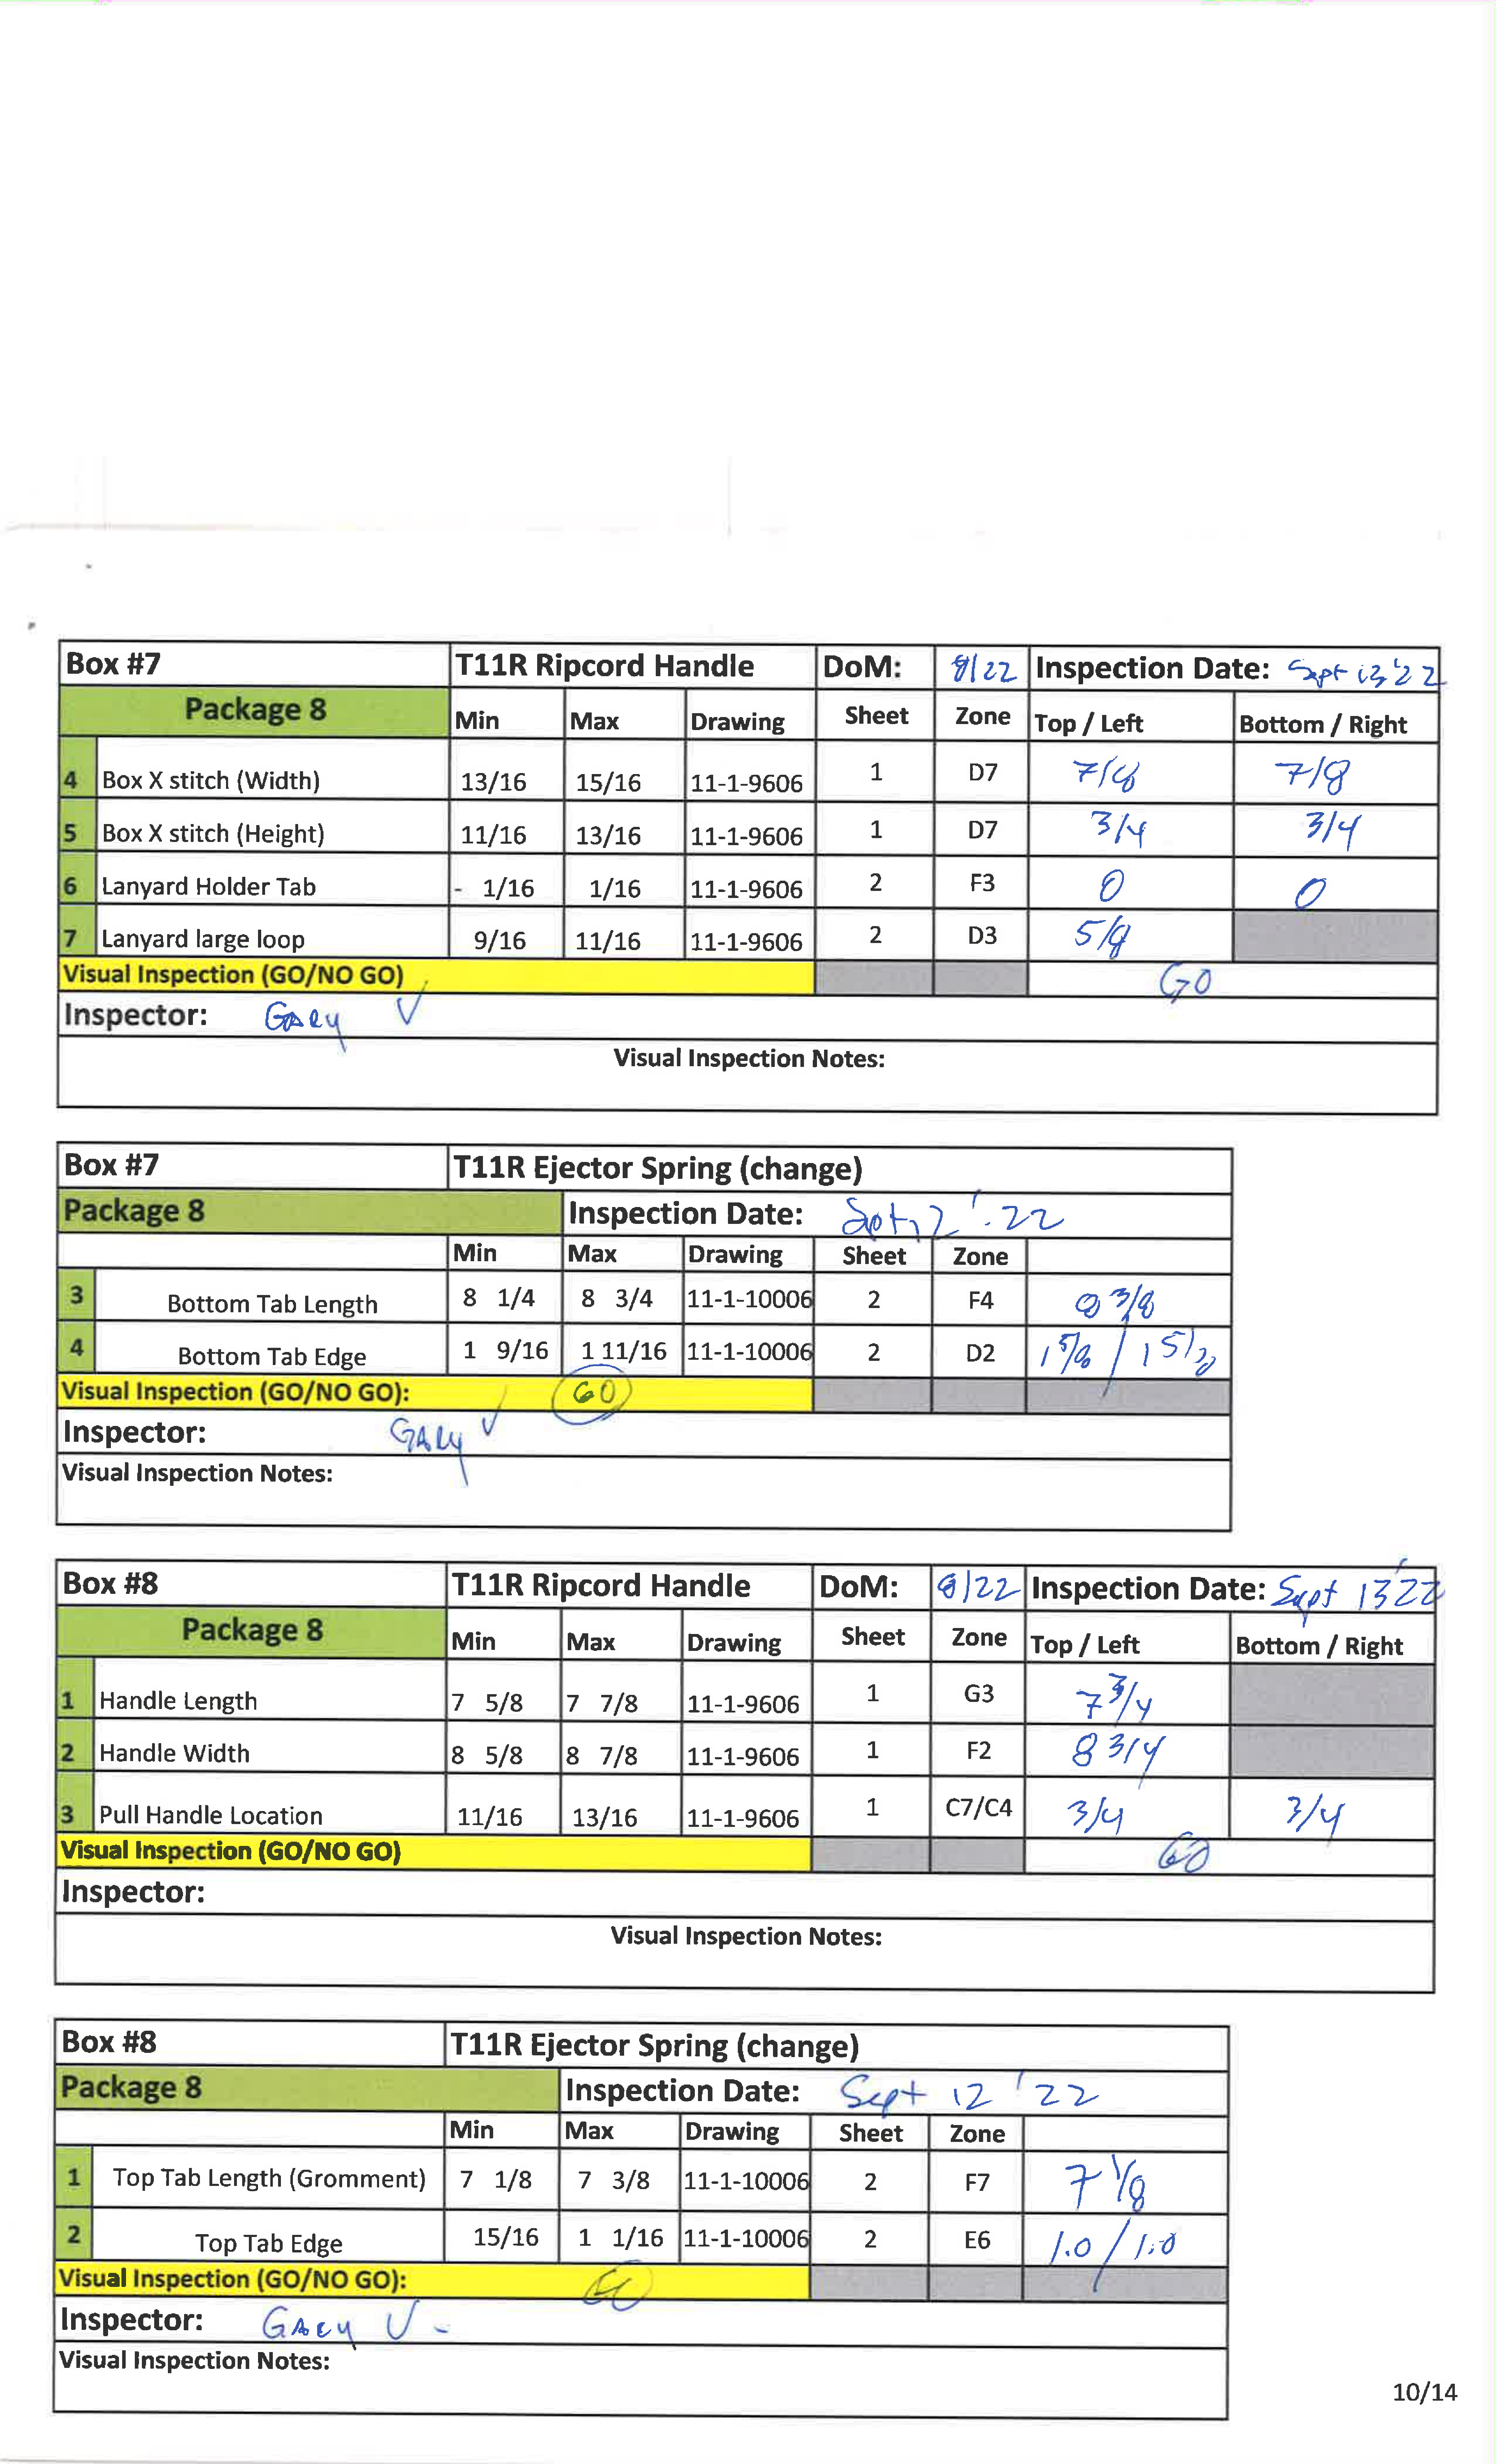 Box #7 T11R Ripcord Handle DoM: 8/22 Inspection Date: Sept 13 '22
Package 8 Min Max Drawing Sheet Zone Top / Left Bottom / Right
4 Box X stitch (Width) 13/16 15/16 11-1-9606 1 D7 7/8 7/8
5 Box X stitch (Height) 11/16 13/16 11-1-9606 1 D7 3/4 3/4
6 Lanyard Holder Tab - 1/16 1/16 11-1-9606 2 F3 0 0
7 Lanyard large loop 9/16 11/16 11-1-9606 2 D3 5/8
Visual Inspection (GO/NO GO) GO
Inspector: GARY V
Visual Inspection Notes:
Box #7 T11R Ejector Spring (change)
Package 8 Inspection Date: Sept 12 '22
Min Max Drawing Sheet Zone
3 Bottom Tab Length 8 1/4 8 3/4 11-1-10006 2 F4 8 3/8
4 Bottom Tab Edge 1 9/16 1 11/16 11-1-10006 2 D2 1 5/8 / 1 5/8
Visual Inspection (GO/NO GO): GO
Inspector: GARY V
Visual Inspection Notes:
Box #8 T11R Ripcord Handle DoM: 8/22 Inspection Date: Sept 13 '22
Package 8 Min Max Drawing Sheet Zone Top / Left Bottom / Right
1 Handle Length 7 5/8 7 7/8 11-1-9606 1 G3 7 3/4
2 Handle Width 8 5/8 8 7/8 11-1-9606 1 F2 8 3/4
3 Pull Handle Location 11/16 13/16 11-1-9606 1 C7/C4 3/4 3/4
Visual Inspection (GO/NO GO) GO
Inspector:
Visual Inspection Notes:
Box #8 T11R Ejector Spring (change)
Package 8 Inspection Date: Sept 12 '22
Min Max Drawing Sheet Zone
1 Top Tab Length (Gromment) 7 1/8 7 3/8 11-1-10006 2 F7 7 1/8
2 Top Tab Edge 15/16 1 1/16 11-1-10006 2 E6 1.0 / 1.0
Visual Inspection (GO/NO GO): GO
Inspector: GARY V -
Visual Inspection Notes:
10/14